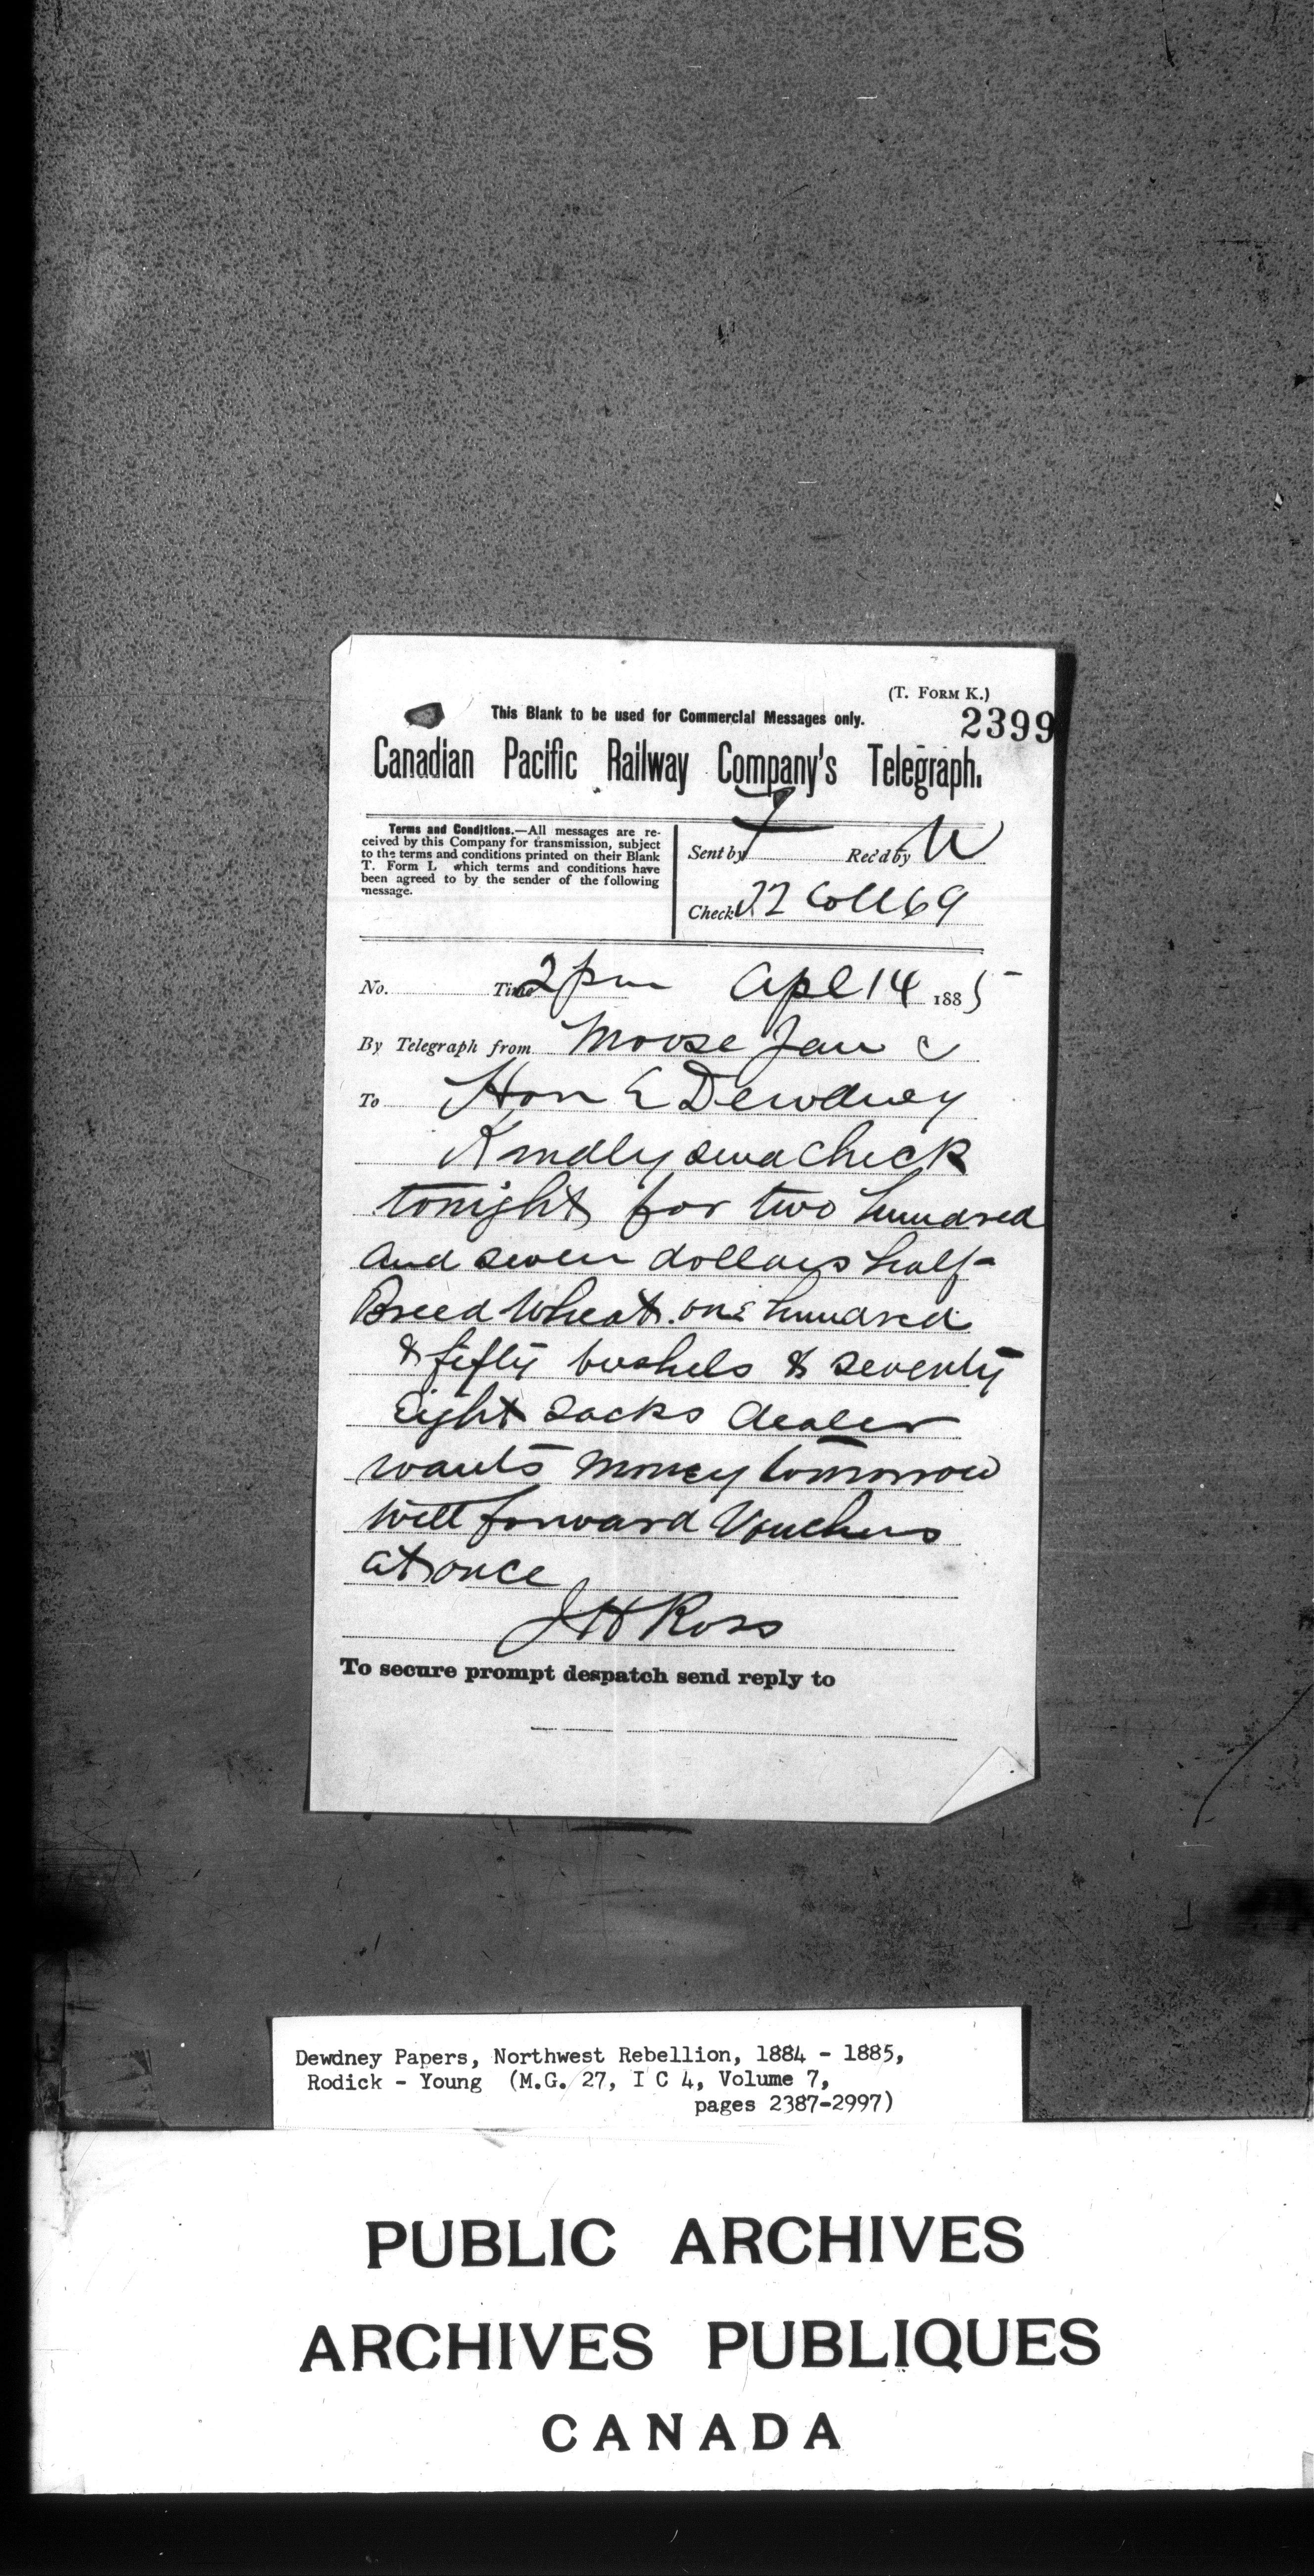 (T. FORM K.)
This Blank to be used for Commercial Messages only.
2399
Canadian Pacific Railway Company's Telegraph.
Terms and Conditions.—All messages are re-
ceived by this Company for transmission, subject
to the terms and conditions printed on their Blank
T. Form I, which terms and conditions have
been agreed to by the sender of the following
message.
Sent by F Rec'd by W
Check 22 Coll 69
No. Time 2 pm Apl 14 1885
By Telegraph from Moose Jaw
To Hon E Dewdney
Kindly send check
tonight for two hundred
and seven dollars half-
Breed Wheat. one hundred
& fifty bushels & seventy
Eight sacks dealer
wants money tomorrow
will forward Vouchers
at once
J H Ross
To secure prompt despatch send reply to
Dewdney Papers, Northwest Rebellion, 1884 - 1885,
Rodick - Young (M.G. 27, I C 4, Volume 7,
pages 2387-2997)
PUBLIC ARCHIVES
ARCHIVES PUBLIQUES
CANADA